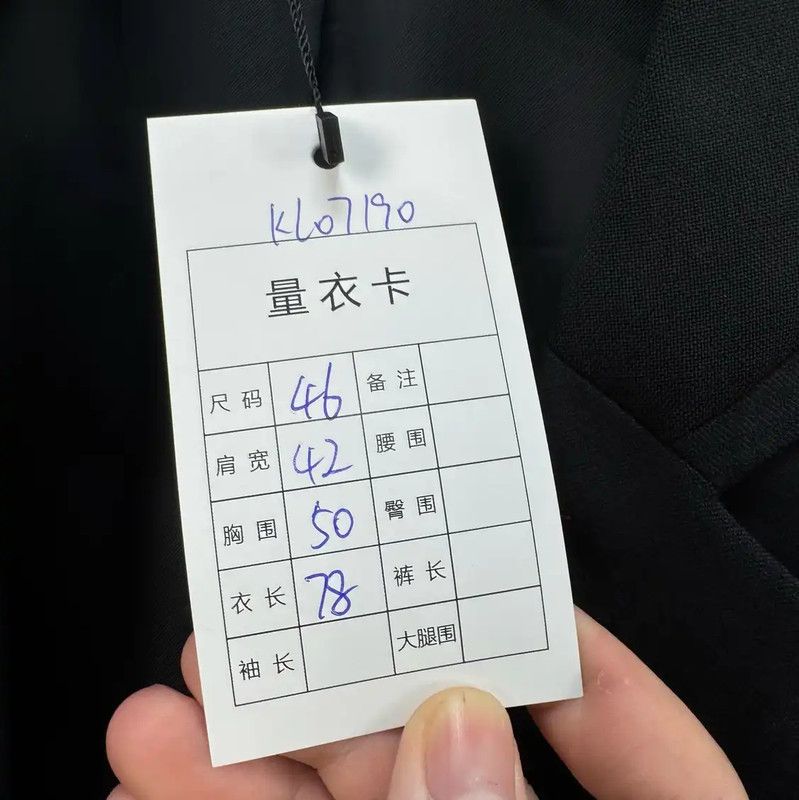 KL07190
量衣卡
尺码 46 备注
肩宽 42 腰围
胸围 50 臀围
衣长 78 裤长
袖长 大腿围